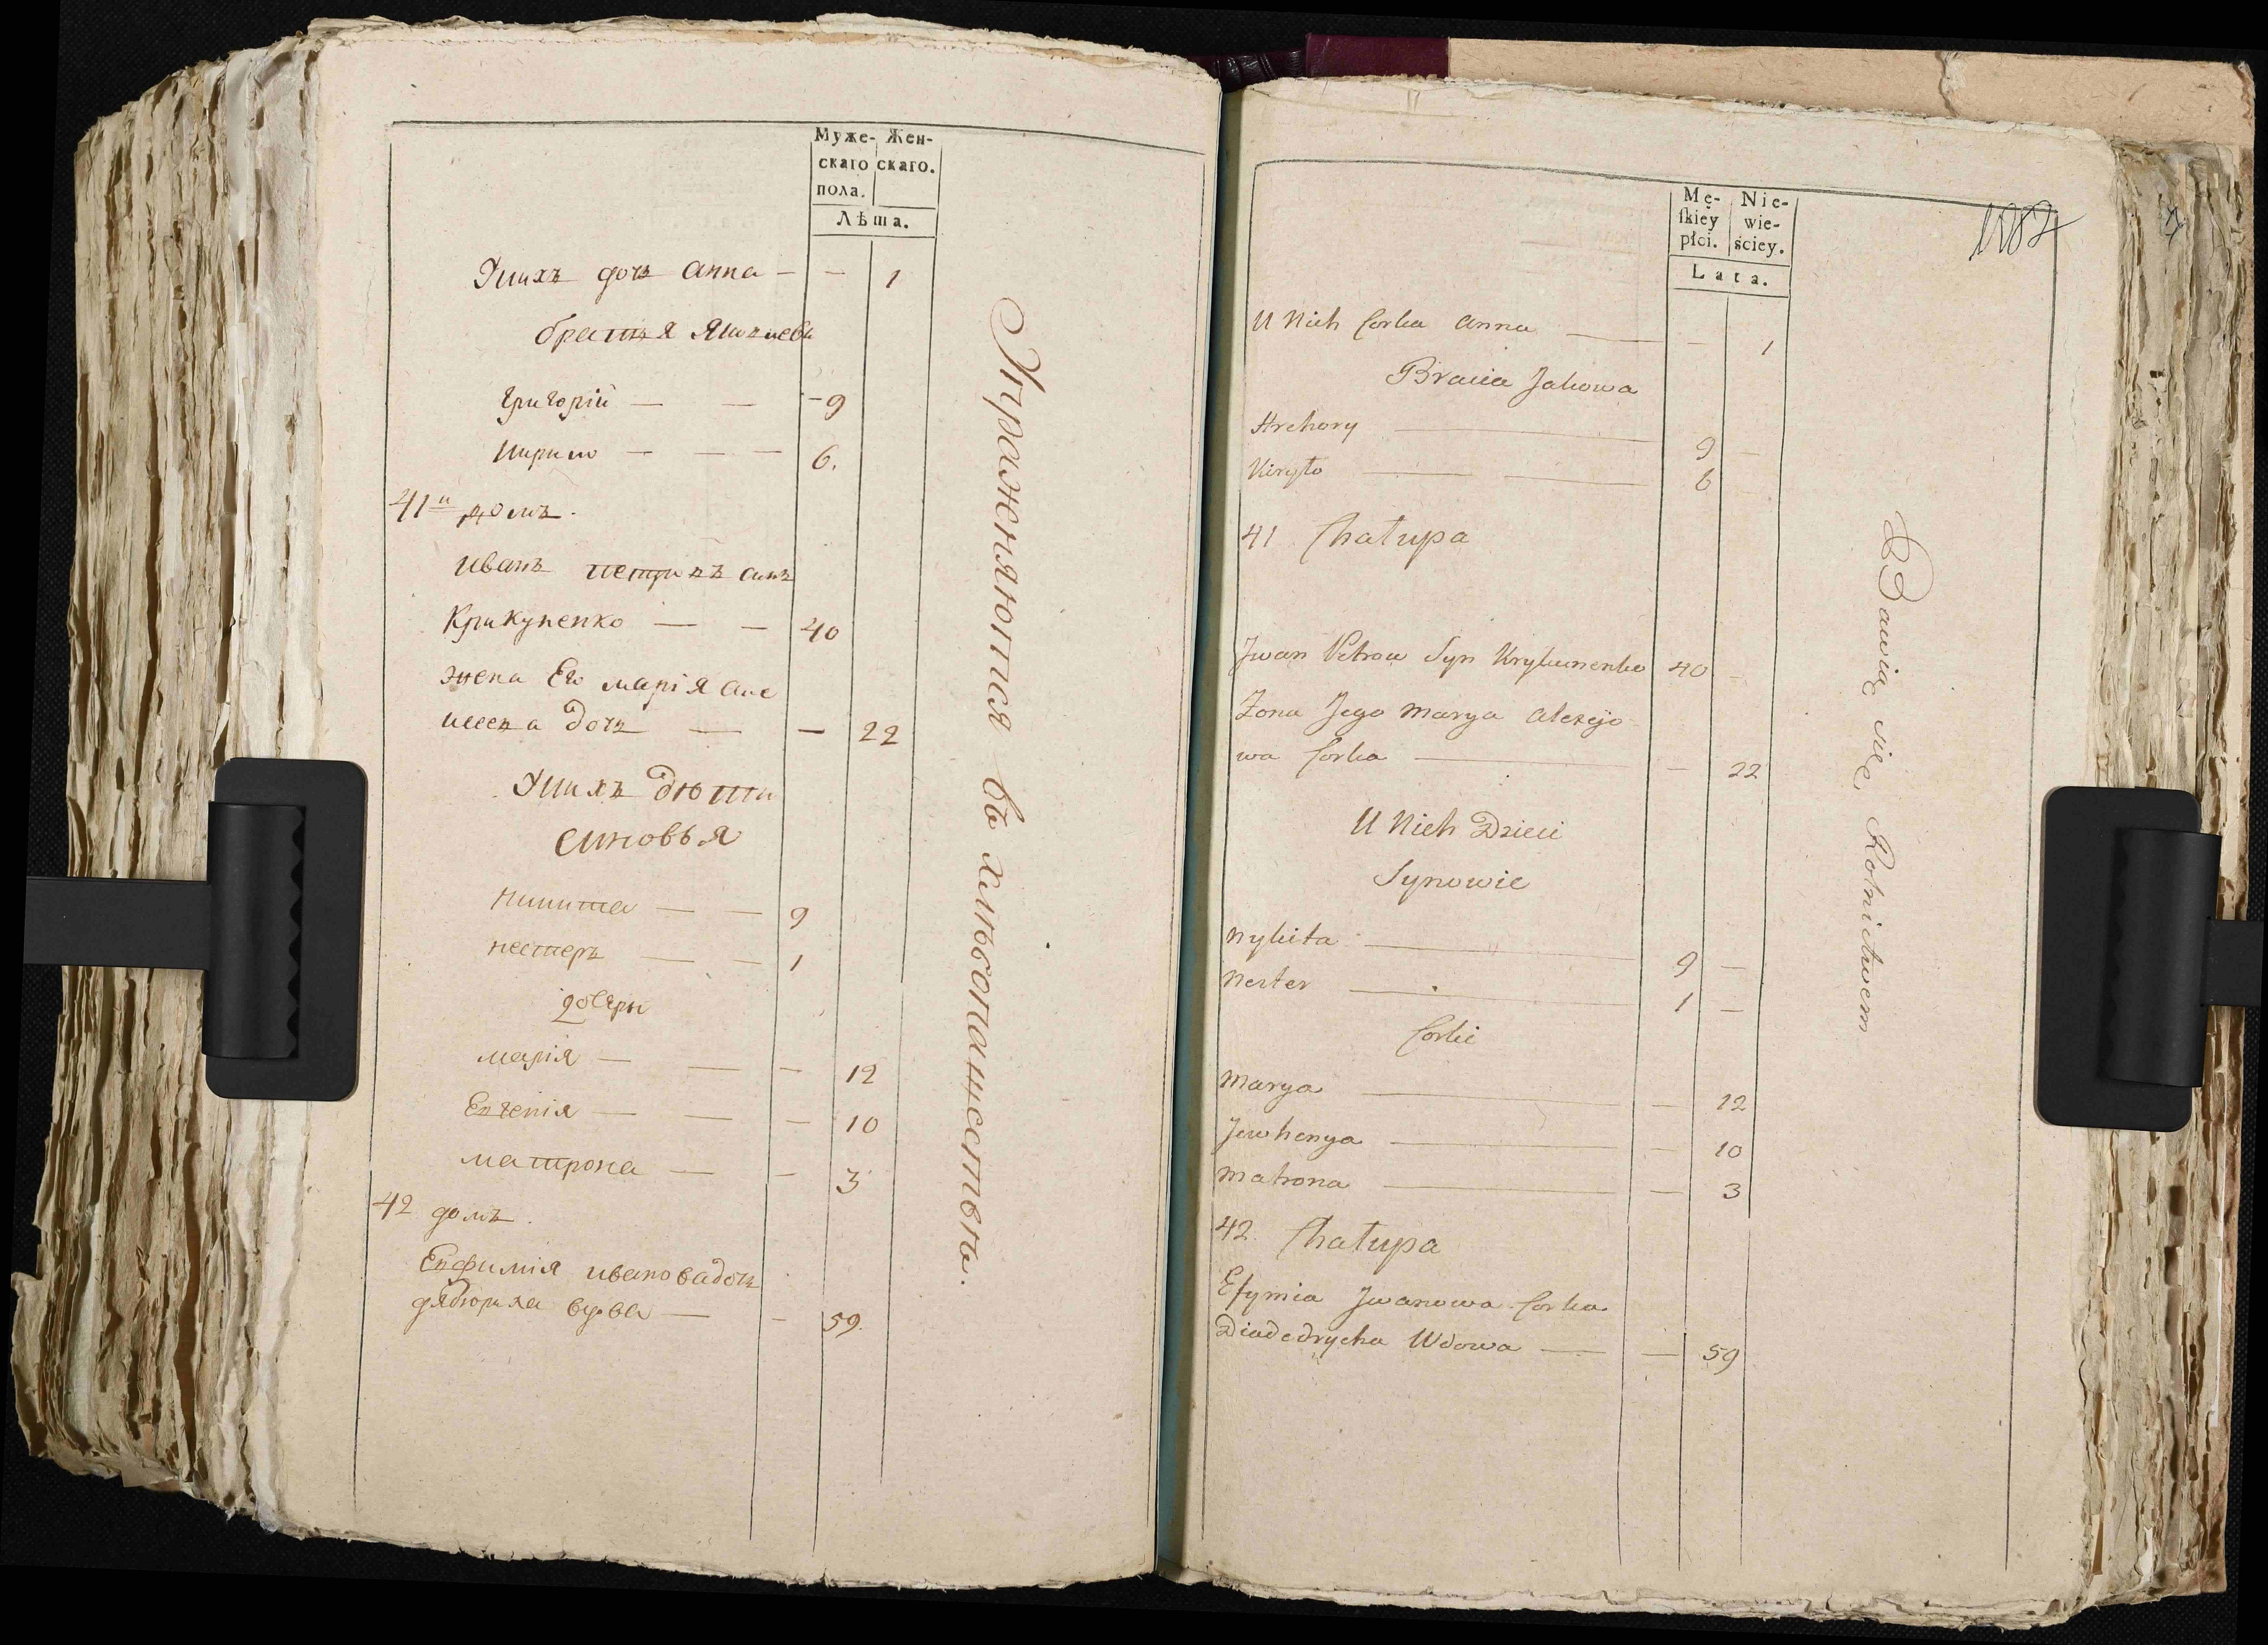 Муже- Жен-
скаго скаго.
пола.
Лѣта.
Унихъ дочъ анна — — 1
братья Якивлевы
григорій — — 9
кирило — — — 6.
41й домъ.
иванъ петровъ синъ
Крикуненко — — 40
жена Его марія але
ксеева дочъ — — 22
Унихъ дѣти
синовья
никита — — 9
нестеръ — — 1
дочери
марія — — — 12
Евгенія — — — 10
матрона — — 3
42 домъ.
Евфимія иванова дочъ
вдова — — 59.
Упражняются въ хлѣбопашествѣ.
Mę- Nie-
skiey wie-
płci. ściey.
Lata.
1182
U Nich Corka Anna — — 1
Bracia Jakowa
Hrehory — 9 —
Kiryło — — 6
41 Chałupa
Jwan Petrow Syn Krykunenko 40 —
Zona Jego Marya Alexijo-
wa Corka — — 22
U Nich Dzieci
Synowie
Nykita — 9 —
Nester — 1 —
Corki
Marya — — 12
Jewhenya — — 10
Matrona — — 3
42. Chałupa
Efymia Jwanowa Corka
Diadedrycha Wdowa — — 59
Bawią się Rolnictwem